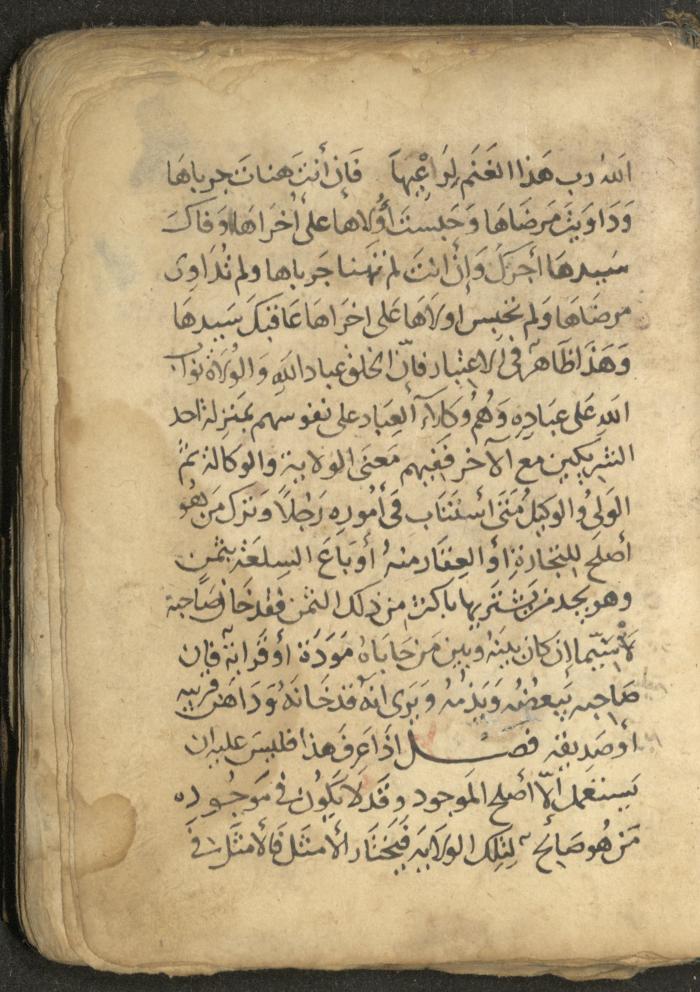 الله رب هذا الغنم لِرَاعْيِهَا فَإن أنتَ هنات جرباها
وَدَاوَيتَ مَرضَاهَا وَحَبسْتَ أُولاها على أُخرَاها وَفاكَ
سَيدهَا أجرَكَ وَإن انتَ لم تهنا جَرباها ولم تُدَاوى
مرضَاهَا وَلم تحبِس اولَاهَا عَلى اخرَاهَا عَاقبكَ سَيدهَا
وَهَذَا ظَاهرٌ فى الاعْتِبار فانّ الخلق عباد اللهِ وَالوُلَاة نوّاب
اللهِ عَلى عبَادِهِ وَهُم وُكلاء العِبَاد على نفوسهم بمَنزِلة احد
الشرِيكين مع الآخر ففيهم مَعنى الولاية والوكالة ثمَّ
الوَلىُّ والوكيلُ مَتى أستَنَاب فى أمُورِه رَجُلاً وَترَك مَن هُو
أصلَح للتجارَةِ أو العِقَار منهُ أوبَاعَ السِلعَة بثمَن
وهو يجد مَن يَشترِيها باكثر من ذلك الثمن فقد خَان صَاحبه
لَاسِيّما إن كان بينَهُ وبين مَن حَابَاهُ مَوَدَة أوقَرابَةٌ فإن
صَاحِبه يَبغضُه وَيَذُمهُ وَيَرى انهُ قد خَانهُ وَدَاهَن قريبه
اوصَدِيقه فصل اذَا عَرفَ هذا فليسَ عليه ان
يَستعمل الّا أصلح المَوجود وقَد لَا يَكُون فى مَوجُوده
مَن هُو صَالح لِتِلك الولايَة فَيَختَار الأمثَل فَالأمثَل فى